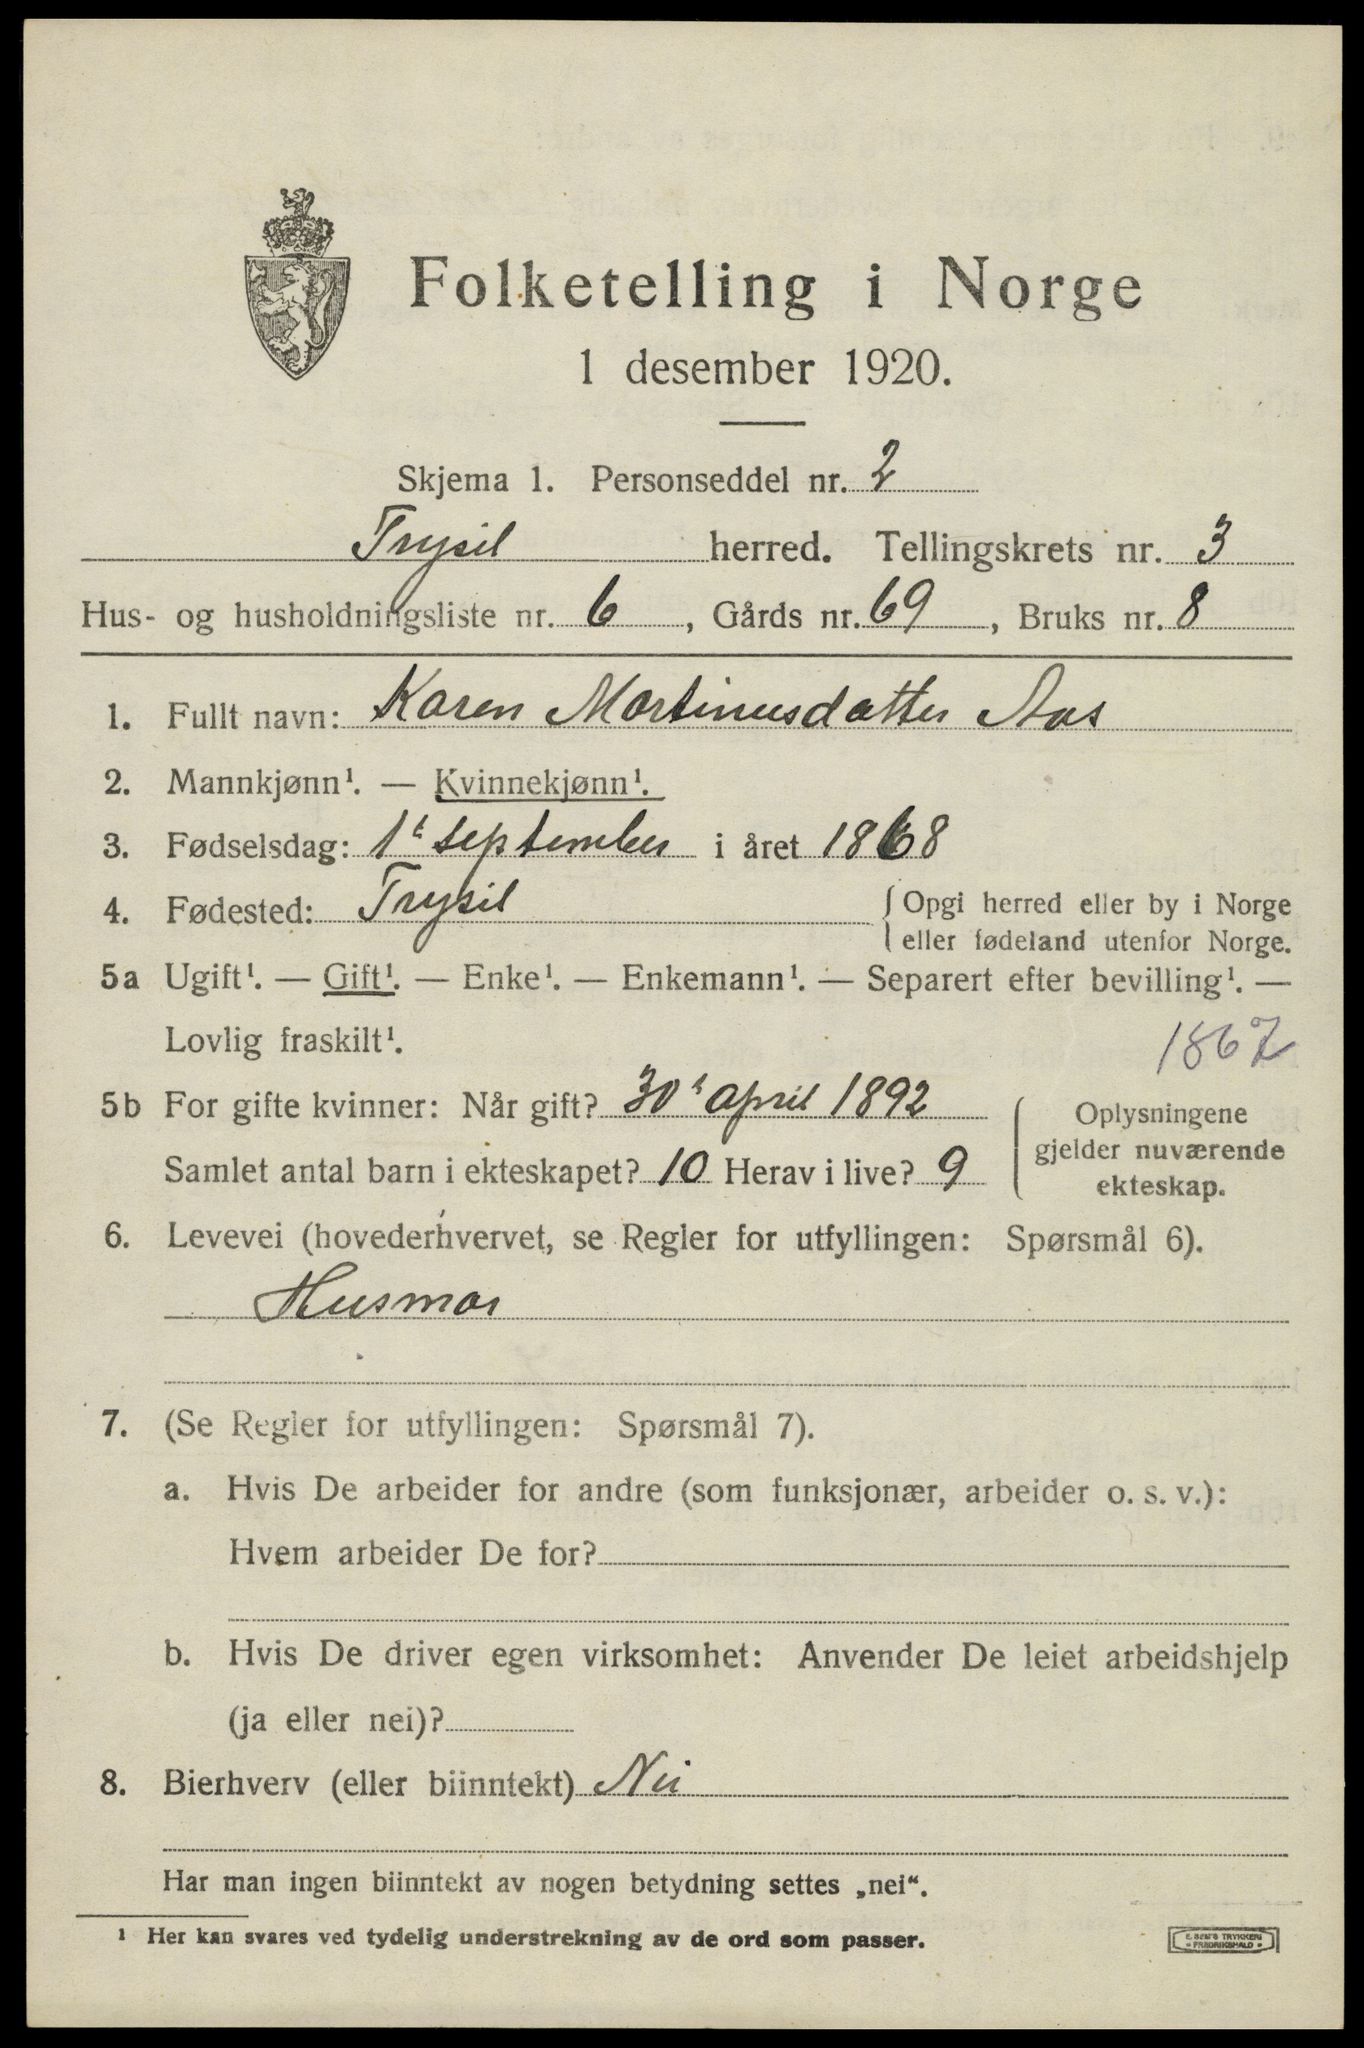 Folketelling i Norge
1 desember 1920.
Skjema 1. Personseddel nr. 2
Trysil herred. Tellingskrets nr. 3
Hus- og husholdningsliste nr. 6, Gårds nr. 69, Bruks nr. 8
1. Fullt navn: Karen Martinusdatter Aas
2. Mannkjønn¹. — Kvinnekjønn¹.
3. Fødselsdag: 1ˢᵗ september i året 1868
4. Fødested: Trysil { Opgi herred eller by i Norge
eller fødeland utenfor Norge.
5a Ugift¹. — Gift¹. — Enke¹. — Enkemann¹. — Separert efter bevilling¹. —
Lovlig fraskilt¹.
1867
5b For gifte kvinner: Når gift? 30ᵗ april 1892
Samlet antal barn i ekteskapet? 10 Herav i live? 9
Oplysningene
gjelder nuværende
ekteskap.
6. Levevei (hovederhvervet, se Regler for utfyllingen: Spørsmål 6).
Husmor
7. (Se Regler for utfyllingen: Spørsmål 7).
a. Hvis De arbeider for andre (som funksjonær, arbeider o. s. v.):
Hvem arbeider De for?
b. Hvis De driver egen virksomhet: Anvender De leiet arbeidshjelp
(ja eller nei)?
8. Bierhverv (eller biinntekt) Nei
Har man ingen biinntekt av nogen betydning settes „nei“.
¹ Her kan svares ved tydelig understrekning av de ord som passer.
E. SEM'S TRYKKERI
FREDRIKSHALD